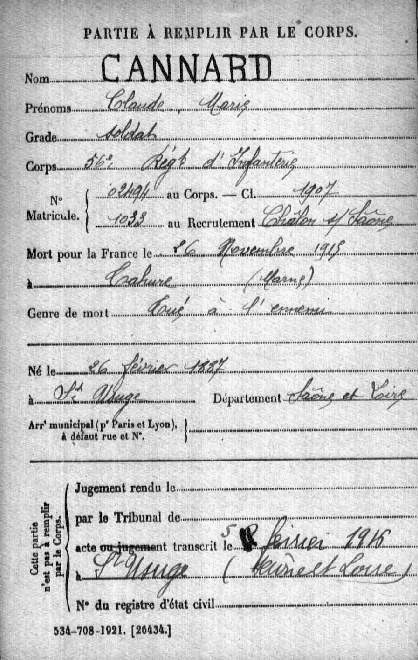 PARTIE À REMPLIR PAR LE CORPS.
Nom CANNARD
Prénoms Claude Marie
Grade soldat
Corps 56e Régt d'Infanterie
N° Matricule. { 02494 au Corps. — Cl. 1907
1033 au Recrutement Châlon s/ Saône
Mort pour la France le 26 Novembre 1915
à Tahure (Marne)
Genre de mort Tué à l'ennemi
Né le 26 février 1887
à St Département Saône et Loire
Arrt municipal (pr Paris et Lyon), à défaut rue et N°. }
Cette partie n'est pas à remplir par le Corps. {
Jugement rendu le
par le Tribunal de
acte ou jugement transcrit le 5 février 1916
à St (et Loire)
N° du registre d'état civil
534-708-1921. [26434.]